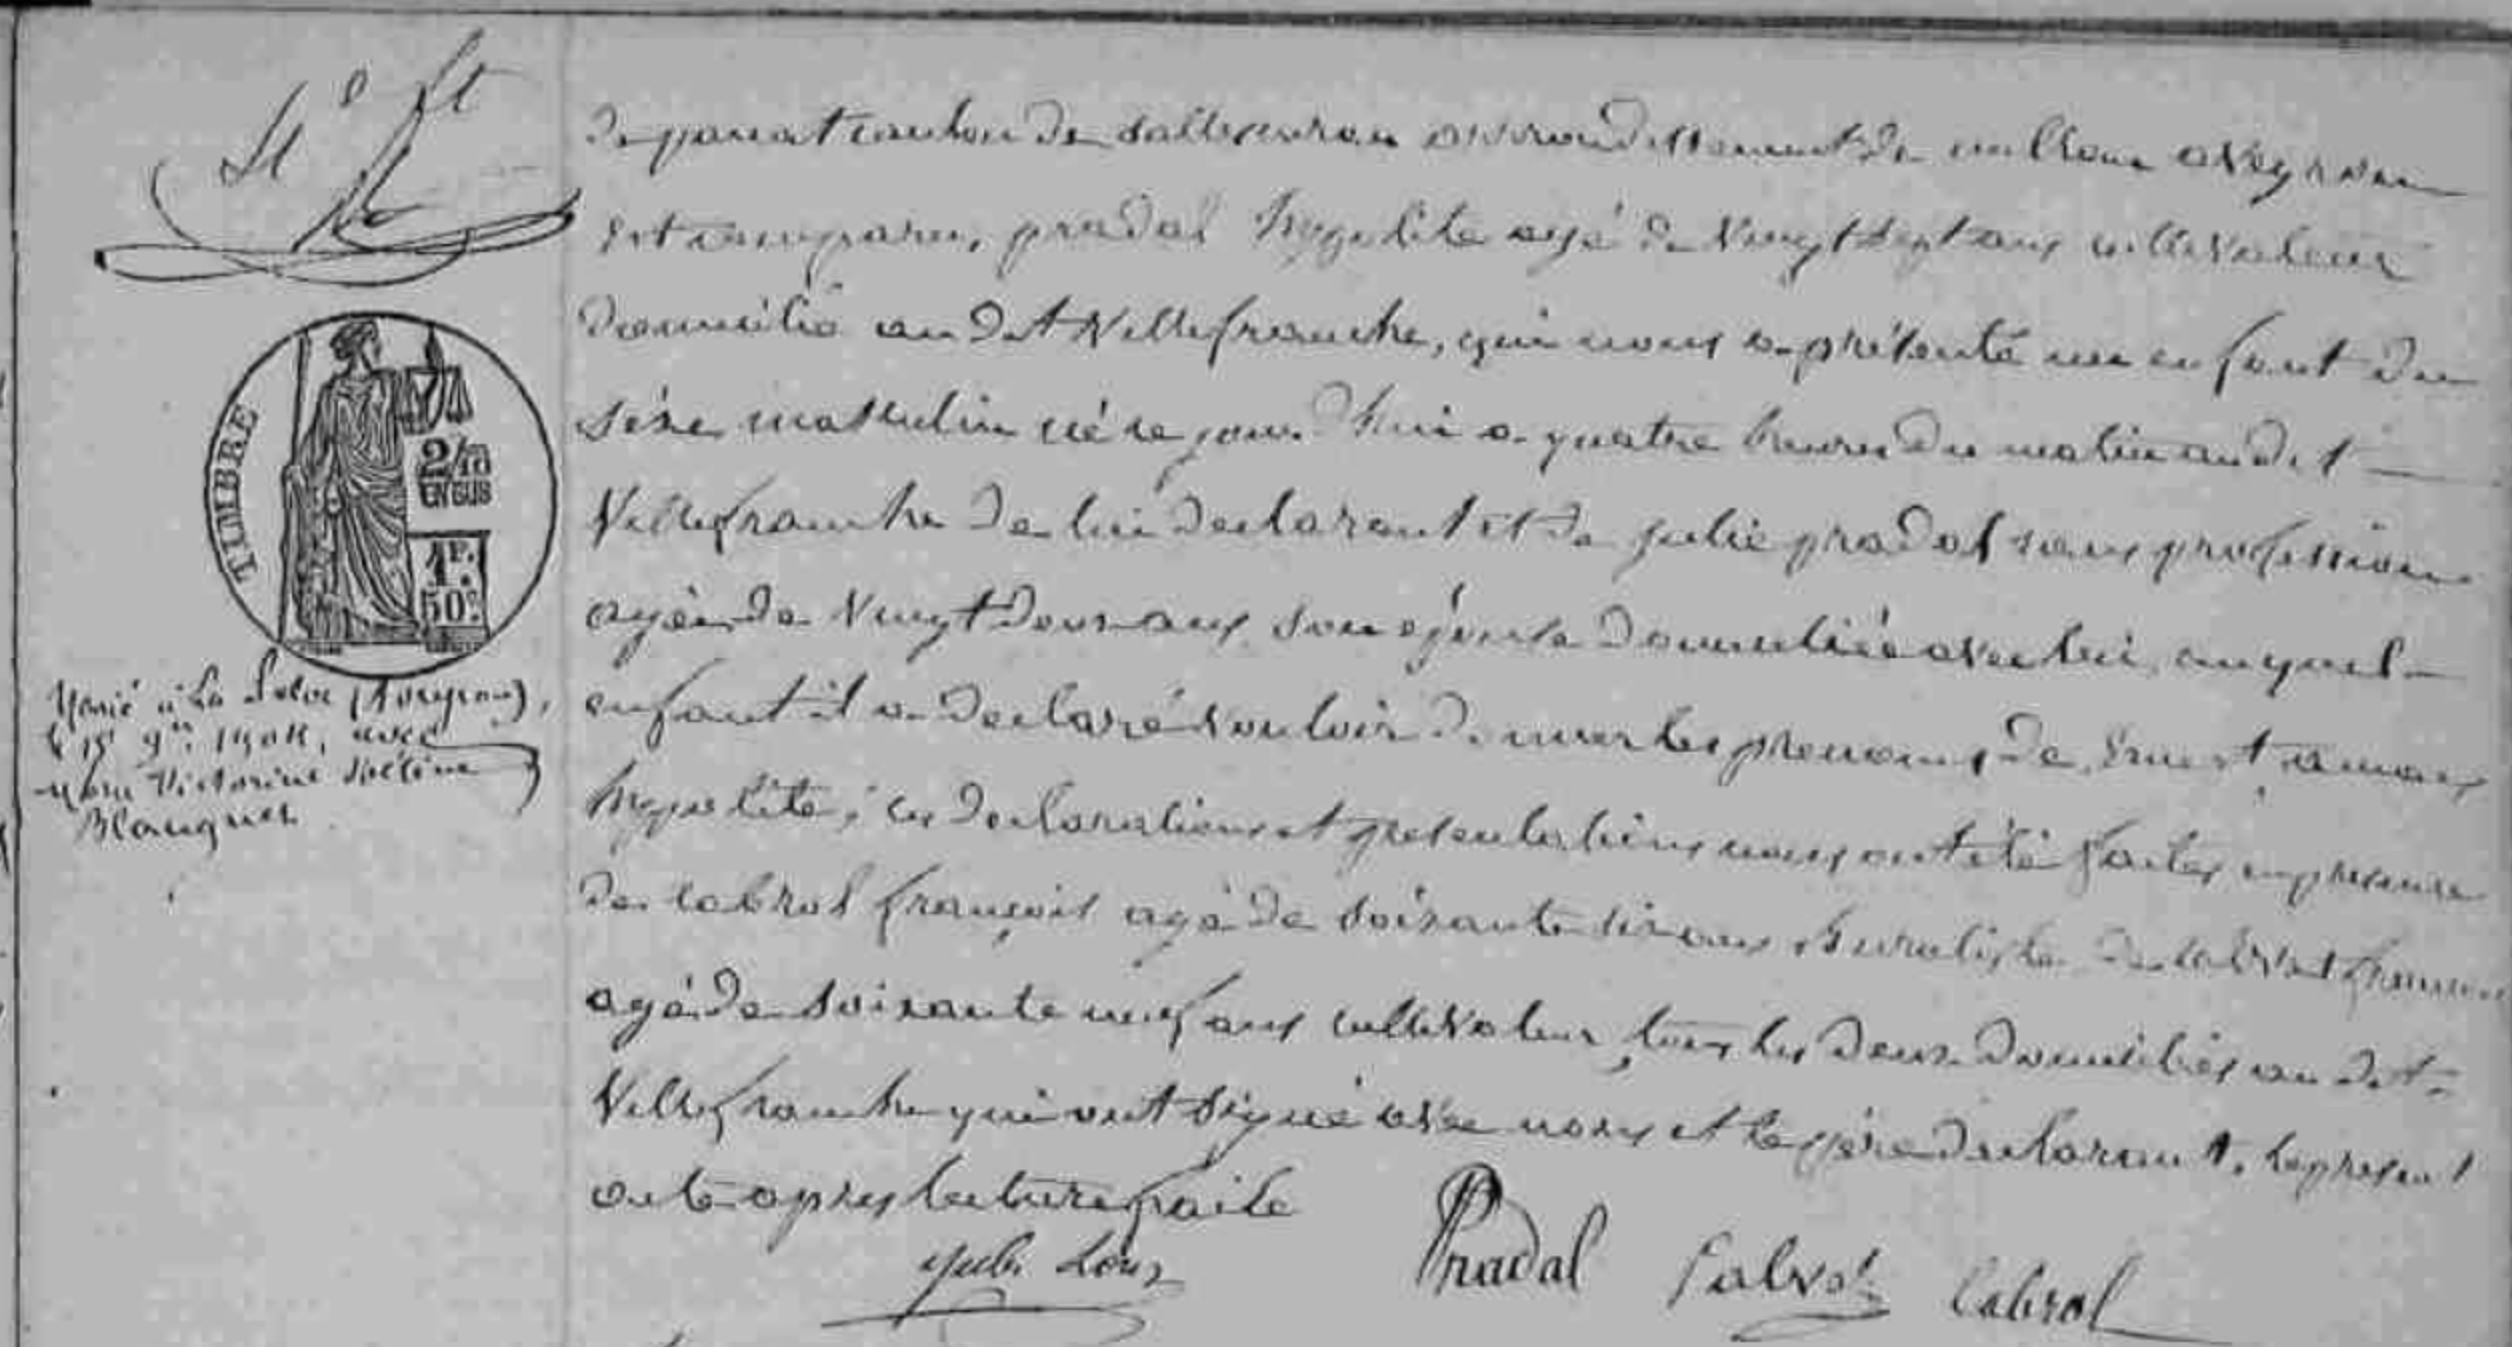 TIMBRE
2/10
EN SUS
1F.
50c.
Marié à La Selve (Aveyron),
le 15 9bre 1904, avec
Marie Victorine Hélène
Blanquer
de panat canton de Sallescuran arrondissement de milhau aveyron
est comparu, pradal hypolite agé de vingt sept ans cultivateur
domicilié au dit Villefranche, qui nous a présenté un enfant du
séxe masculin né ce jour d'hui a quatre heures du matin au dit
Villefranche de lui declarant et de julie pradal sans profession
agée de vingt deux ans son épouse domiciliée avec lui, auquel
enfant il a declaré vouloir donner les prenoms de Ernest amans
hypolite; ces declarations et presentations nous ont été faites en presence
de Cabrol françois agé de soixante six ans Buraliste
agé de soixante neuf ans cultivateur, tous les deux domiciliés au dit
Villefranche qui ont signé avec nous et le père declarant, le present
acte apres lecture faite
Pradal Calvet Cabrol